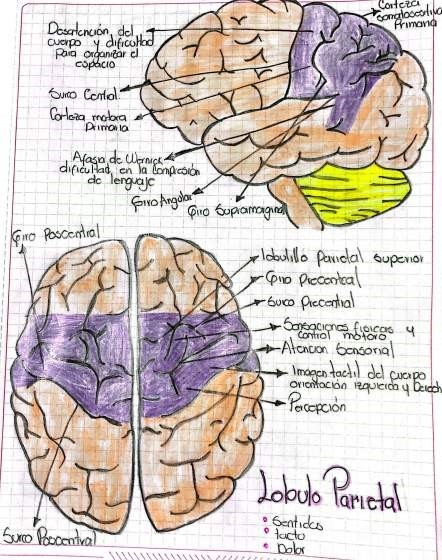 Desatención del
cuerpo y dificultad
para organizar el
espacio
Corteza
somatosensitiva
Primaria
Surco Central
Corteza motora
Primaria
Afasia de Wernick
dificultad en la compresión
de lenguaje
Giro Angular
Giro Supramarginal
Giro Poscentral
lobulillo Parietal superior
Giro Precentral
Surco Precentral
Sensaciones fisicas y
control motoro
Atencion Sensorial
Imagen tactil del cuerpo
orientación izquierda y Derecha
Percepción
Lobulo Parietal
Sentidos
tacto
Dolor
Surco Poscentral